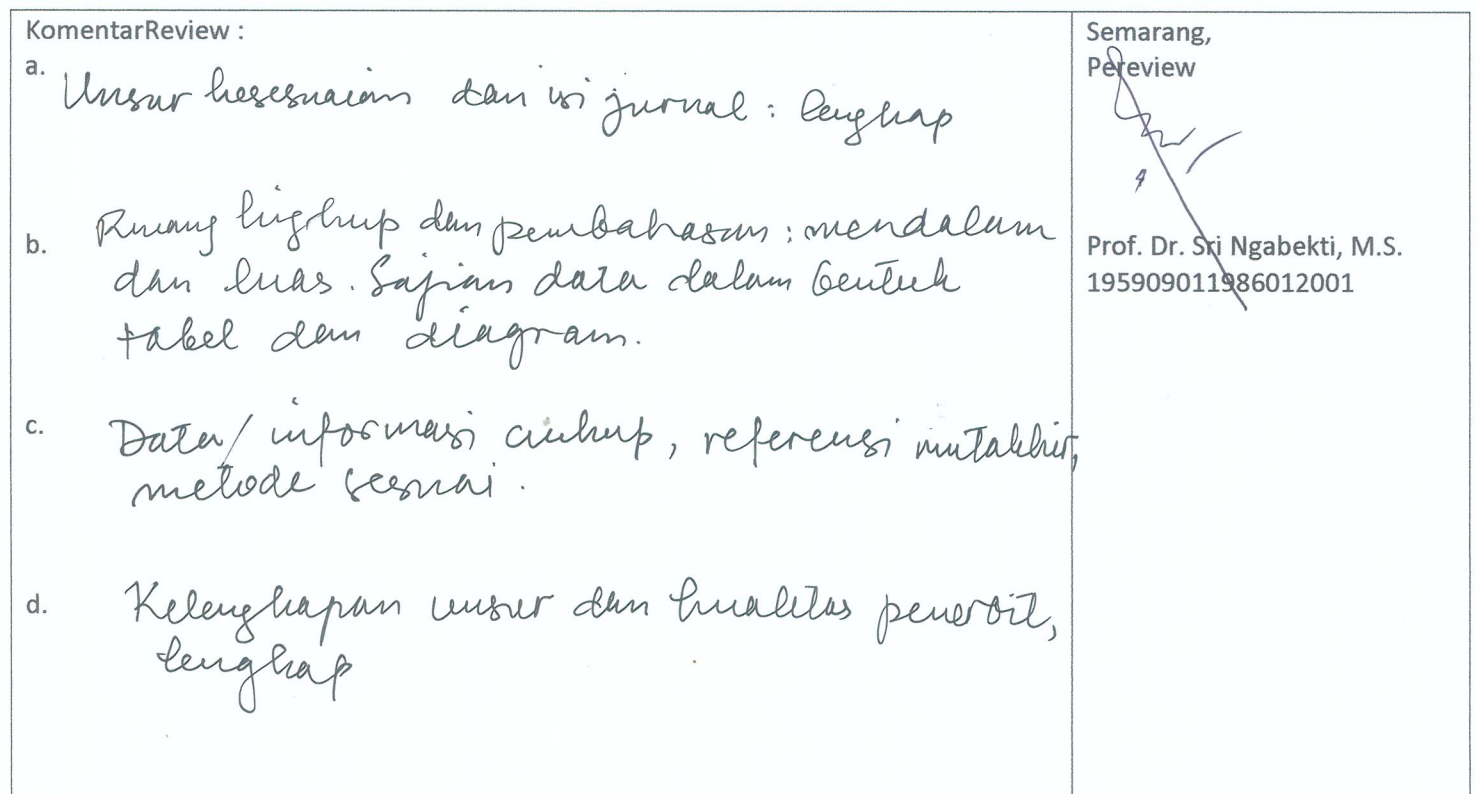 KomentarReview :
a. Unsur kesesuaian dan isi jurnal : lengkap
b. Ruang lingkup dan pembahasan : mendalam
dan luas. Sajian data dalam bentuk
tabel dan diagram.
c. Data/informasi cukup, referensi mutakhir,
metode sesuai.
d. Kelengkapan unsur dan kualitas penerbit,
lengkap
Semarang,
Pereview
Prof. Dr. Sri Ngabekti, M.S.
195909011986012001